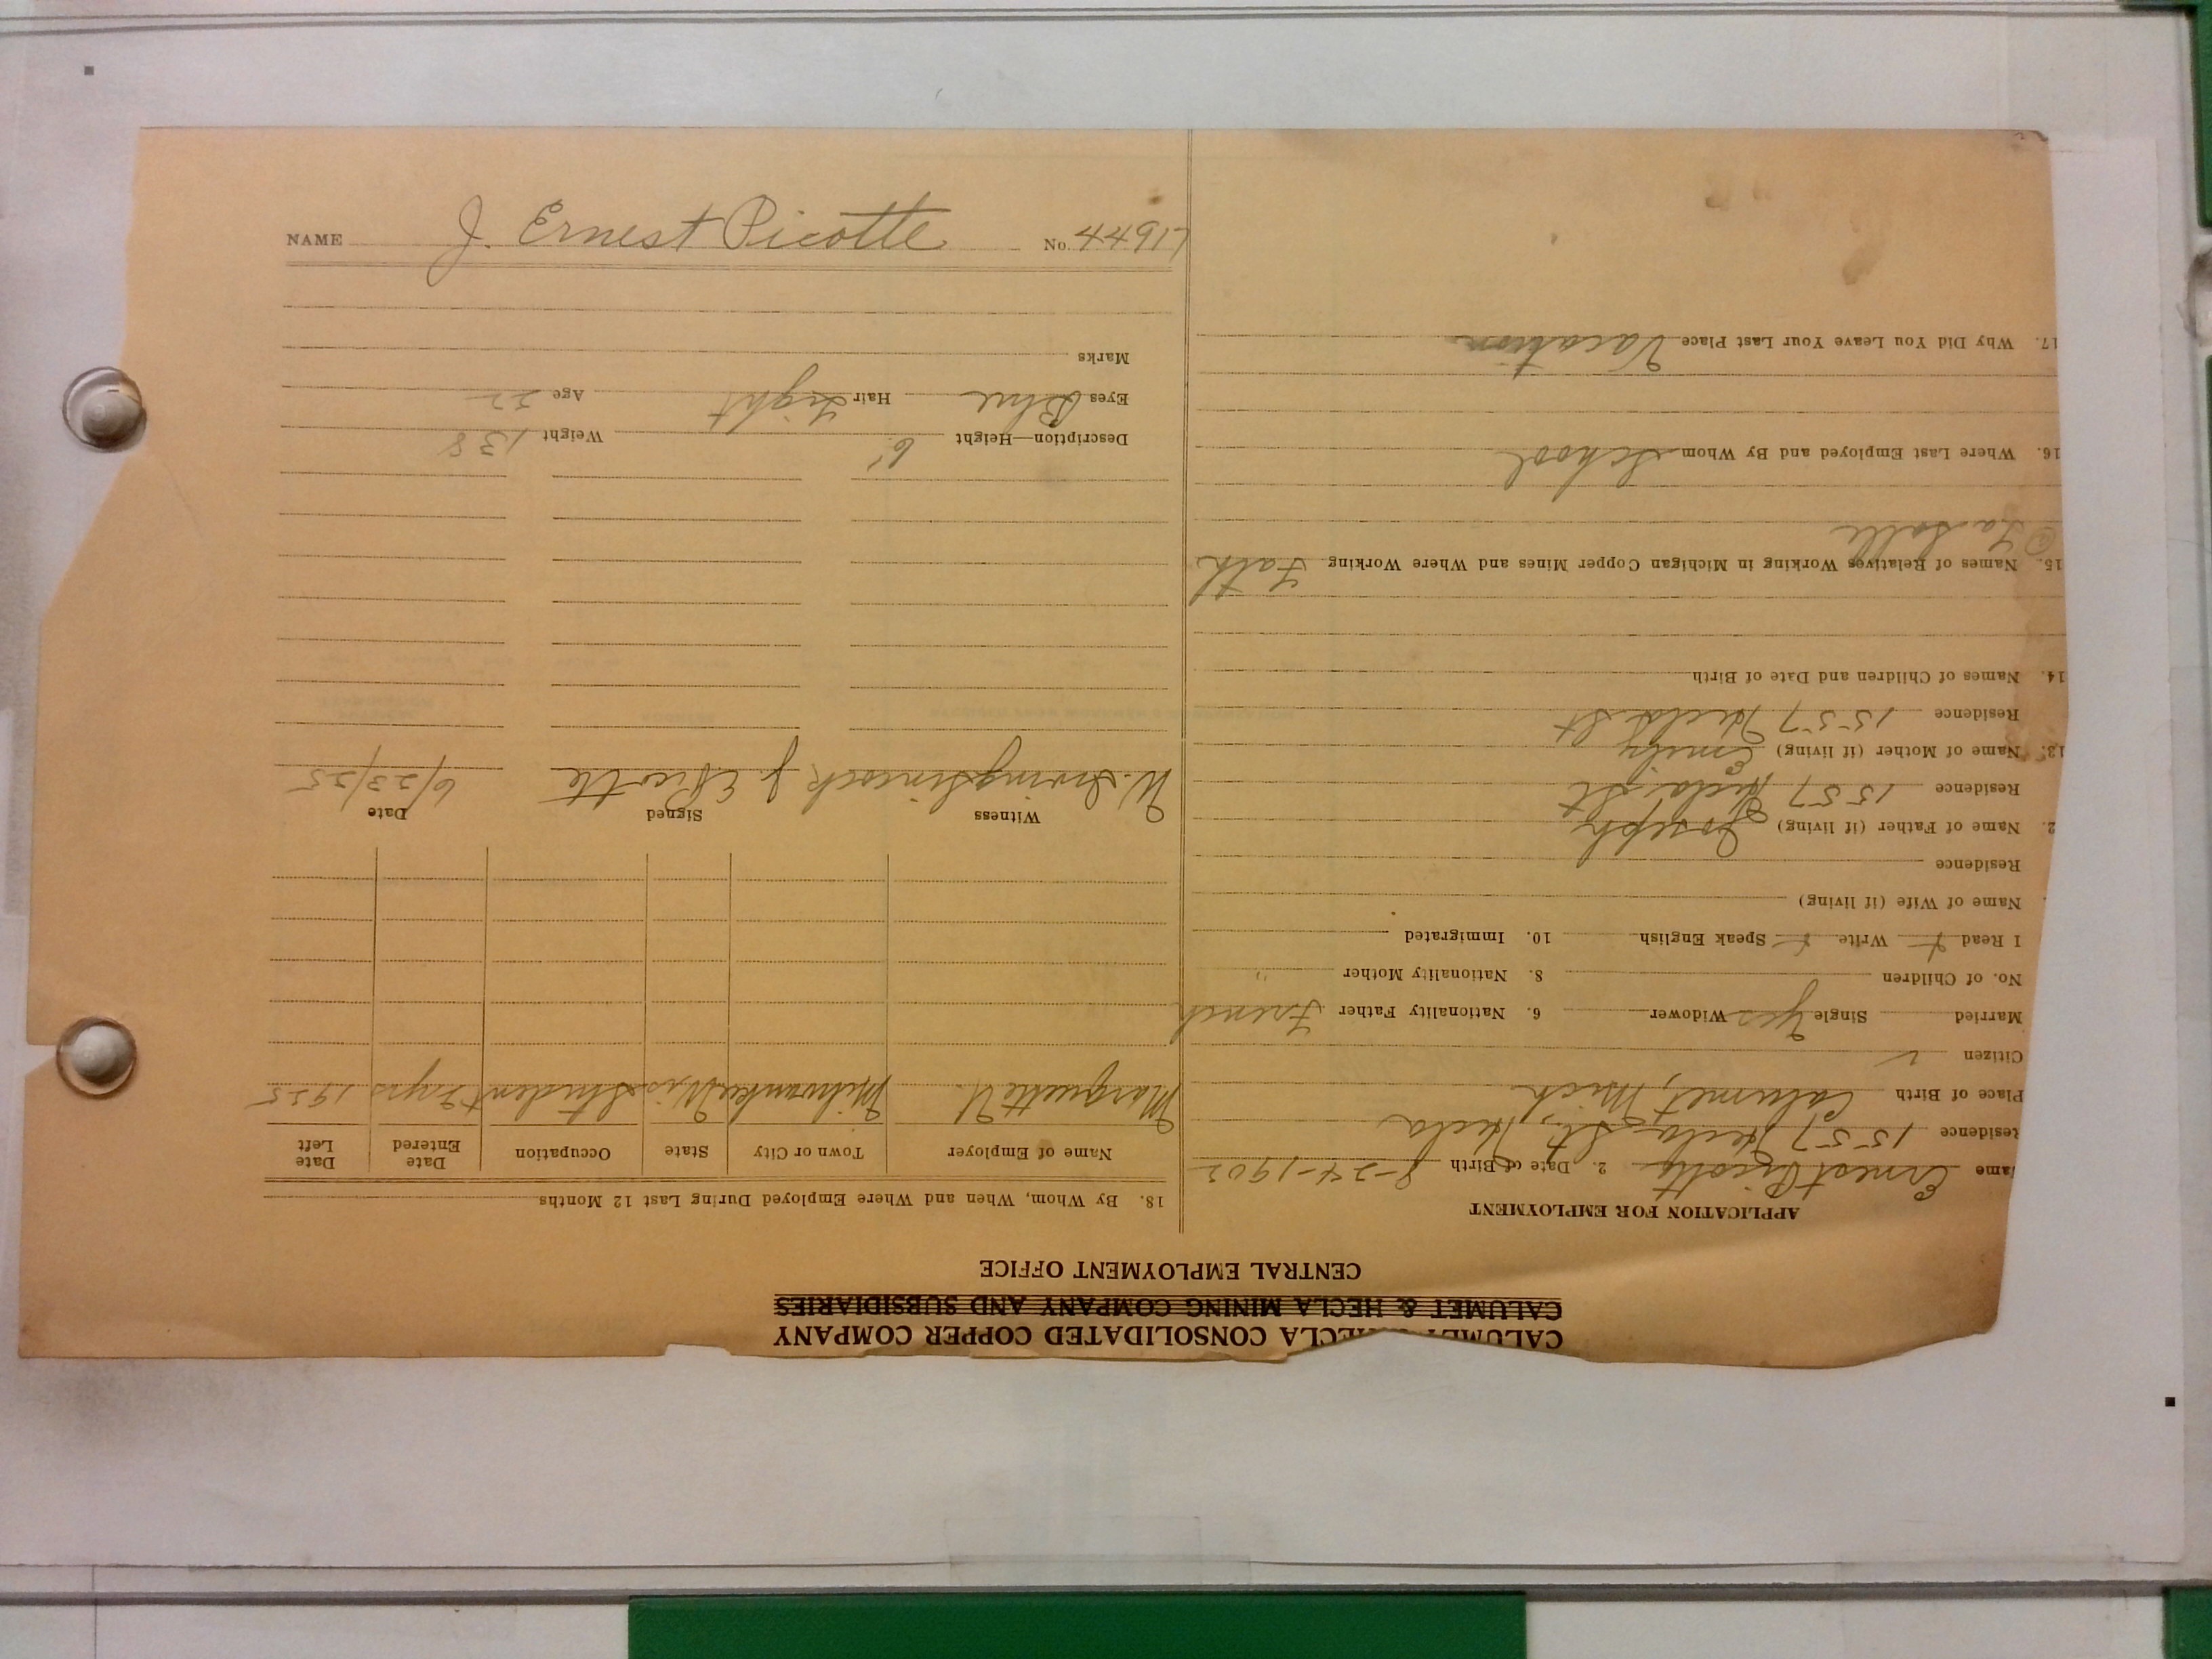 NAME J. Ernest Picotte No. 44917
CALUMET & HECLA CONSOLIDATED COPPER COMPANY
CALUMET & HECLA MINING COMPANY AND SUBSIDIARIES
CENTRAL EMPLOYMENT OFFICE
APPLICATION FOR EMPLOYMENT
ame Ernest Picotte 2. Date of Birth 8-24-1902
Residence 1557 Hecla St., Hecla
Place of Birth Calumet, Mich
Citizen ✓
Married Single Yes Widower 6. Nationality Father French
No. of Children 8. Nationality Mother "
I Read Write Speak English 10. Immigrated
Name of Wife (if living)
Residence
2. Name of Father (if living) Joseph
Residence 1557 Hecla St
13. Name of Mother (if living) Emily
Residence 1557 Hecla St
14. Names of Children and Date of Birth
15. Names of Relatives Working in Michigan Copper Mines and Where Working Fath
@ La Salle
16. Where Last Employed and By Whom School
17. Why Did You Leave Your Last Place Vacation
18. By Whom, When and Where Employed During Last 12 Months
Name of Employer Town or City State Occupation Date Entered Date Left
Marquette U. Milwaukee Wis Student 2 yrs 1925
Witness Signed Date
W. Irving J. E. Picotte 6/23/25
Description—Height 6' Weight 138
Eyes Blue Hair Light Age 22
Marks